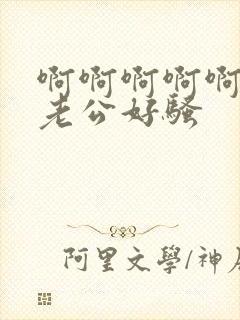 啊啊啊啊啊
老公好骚
阿里文學/神